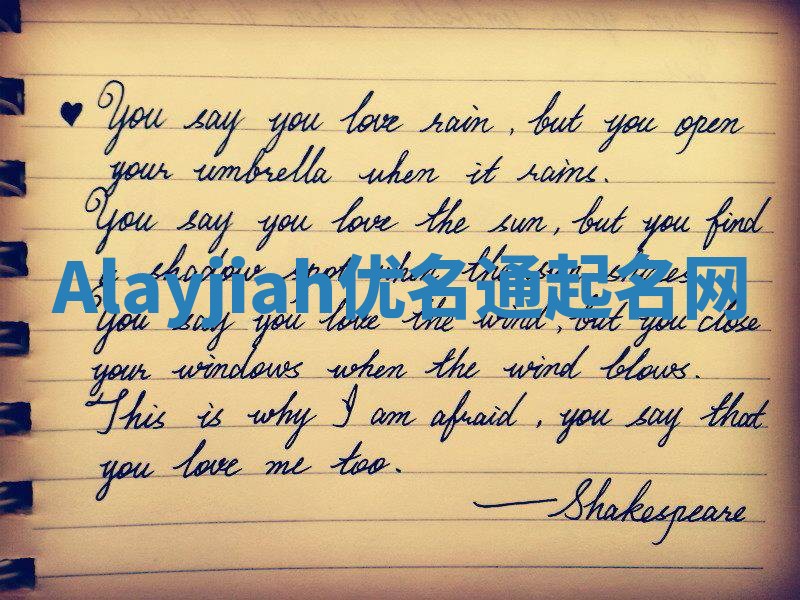 ♥ You say you love rain, but you open
your umbrella when it rains.
You say you love the sun, but you find
a shadow spot when the sun shines.
Alayjiah优名通起名网
You say you love the wind, but you close
your windows when the wind blows.
This is why I am afraid, you say that
you love me too.
—Shakespeare